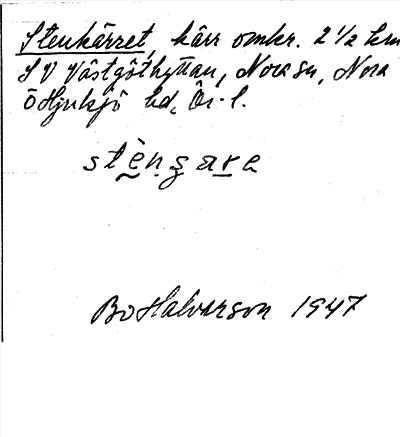 Stenkärret, kärr omkr. 2 1/2 km
SV Västgöthyttan, Nora sn, Nora
o Hjulsjö hd, Ör. l.
stèngare
Bo Halvarson 1947